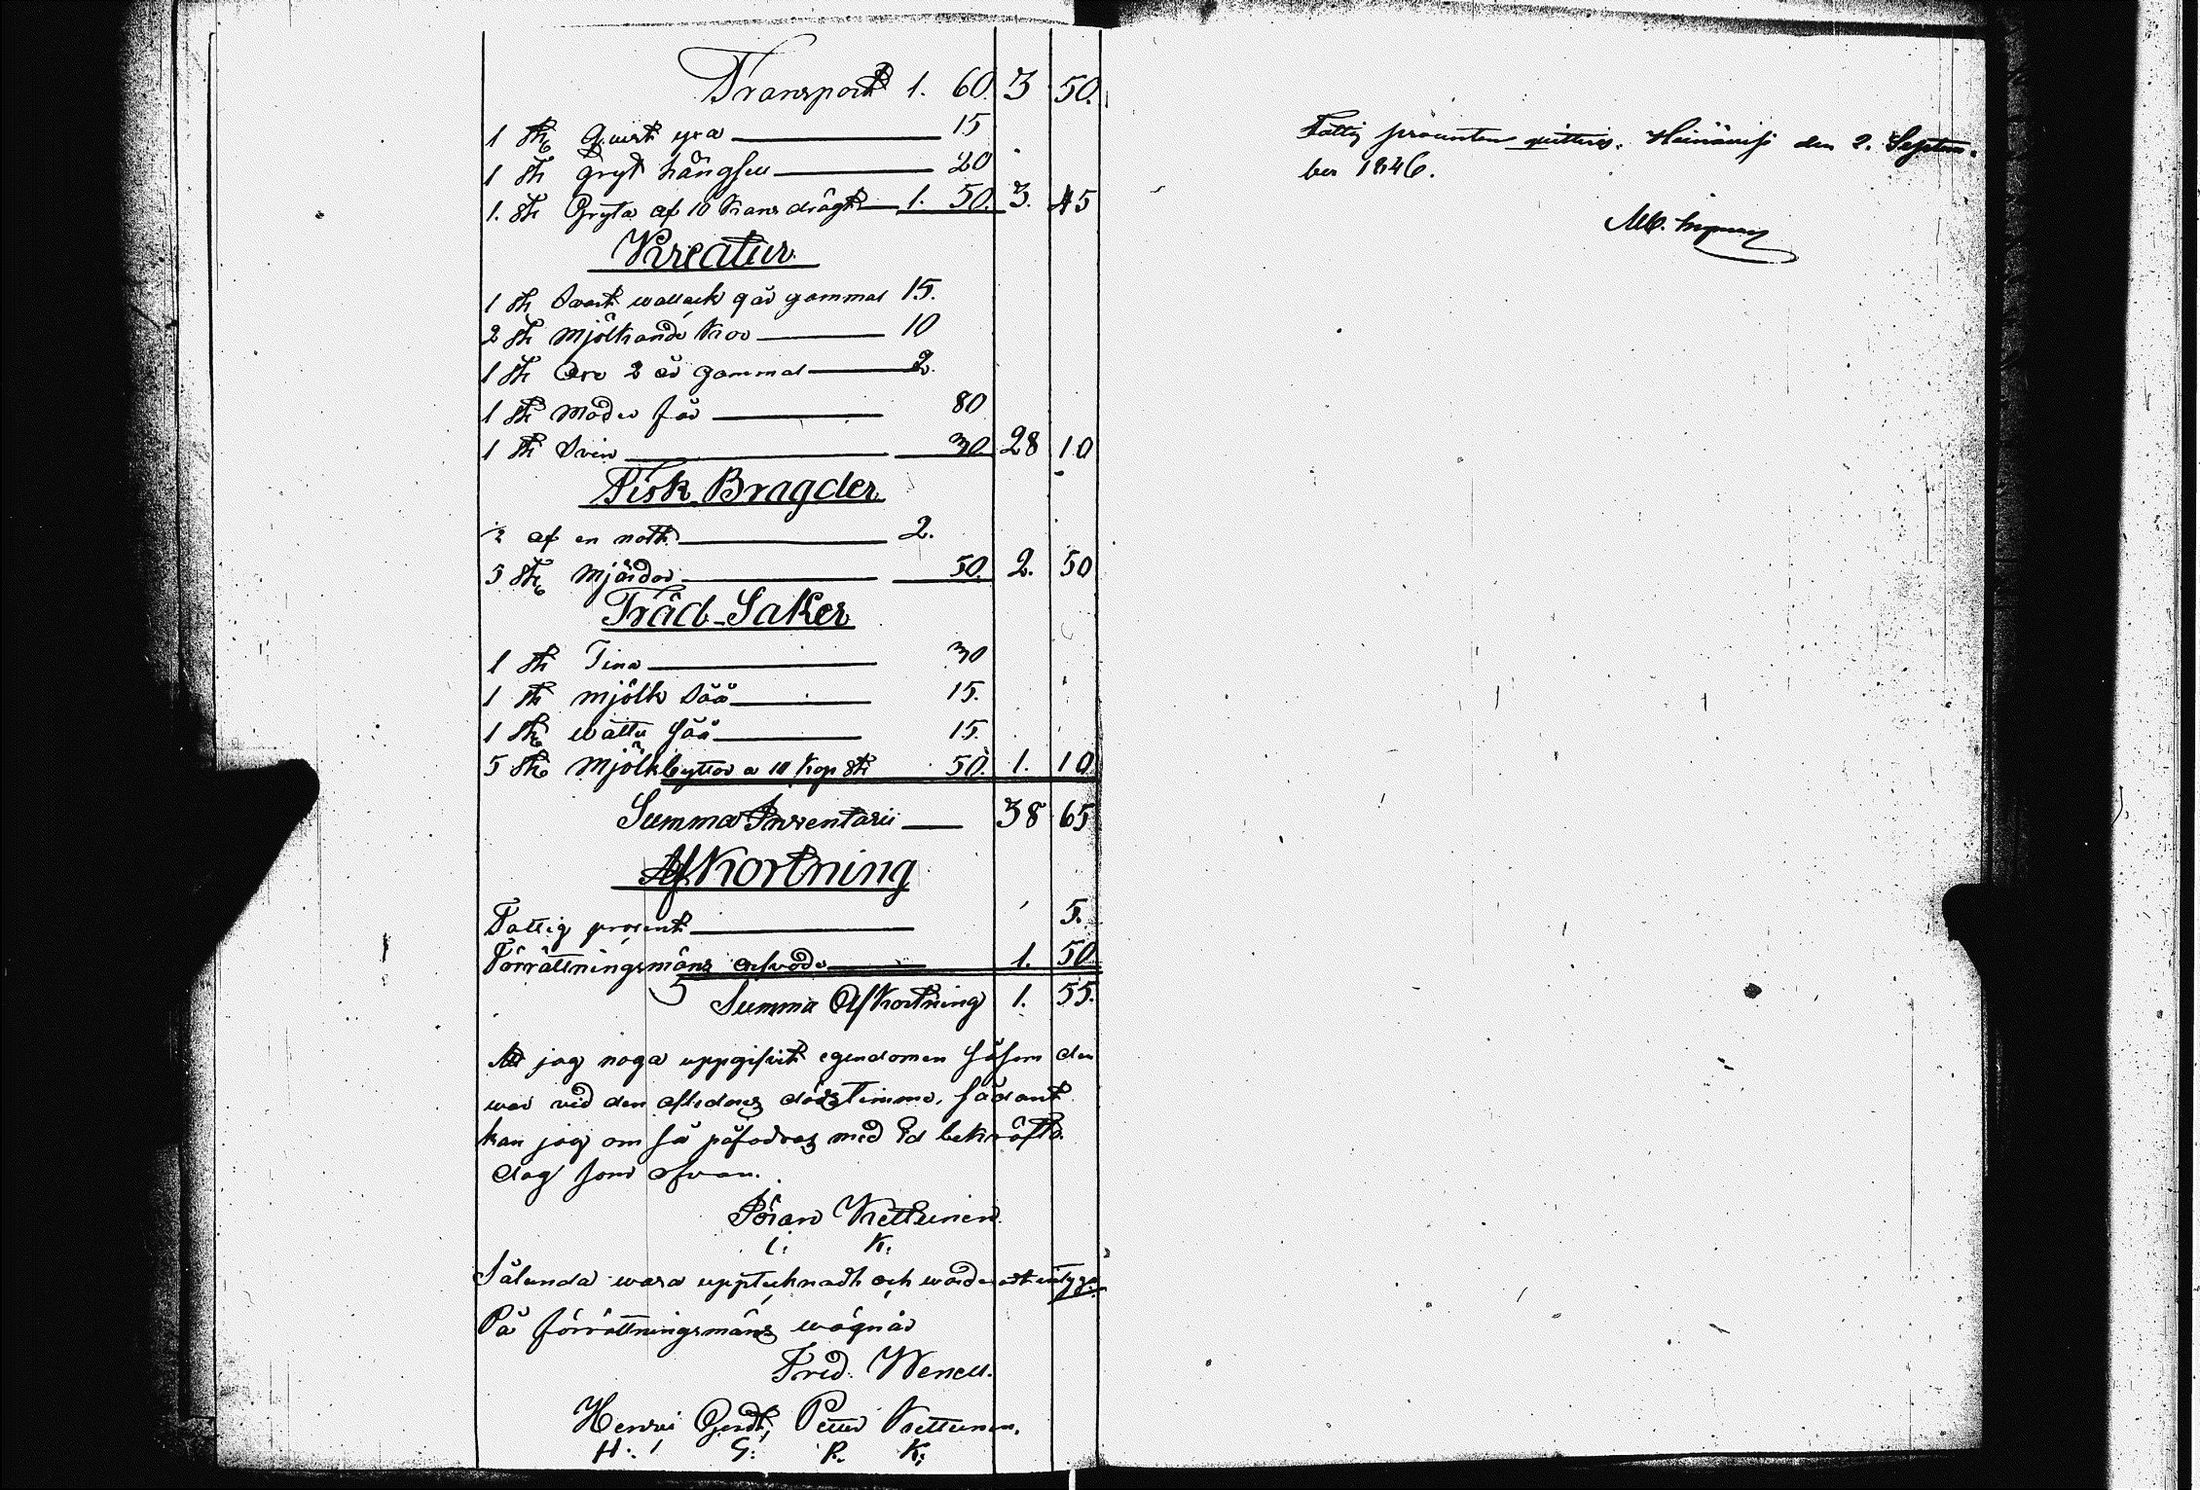 Transport 1. 60. 3 50.
1 St. Quist yxa 15
1 St gryt hängsel 20
1. St Gryta af 10 Kans drägt 1. 50. 3. 45
Kreatur
1 St Svart wallack 9 år gammal 15.
2 St Mjölkande Kor 10
1 St Qvo 2 år gammal 2.
1 St Moder får 80
1 St Svin 30 28 10
Fisk Bragder
½ af en noth 2.
5 St. Mjärdor 50. 2. 50
Träd-Saker
1 St Tina 30
1 St mjölk Såå 15.
1 St. wattu Såå 15.
5 St. Mjölkbyttor a 10 Kop St 50. 1. 10
Summa Inventarii 38 65
Afkortning
Fattig prosent 5.
Förrättningsmäns arfvode 1. 50
Summa Afkortning 1. 55.
At jag noga uppgifvit egendomen såsom den
war vid den aflednes dödstimma, sådant
kan jag om så påfodras med Ed bekräfta.
dag som ofvan.
Göran Kettunen
G. K.
Sålunda vara upptecknadt och värderadt intygar
På förrättningsmäns wägnar
Fred. Wenell.
Henrik Petter Kettunen.
H. G. P. K.
Fattig procenten quitteras. Heinävesi den 2. Septem-
ber 1846.